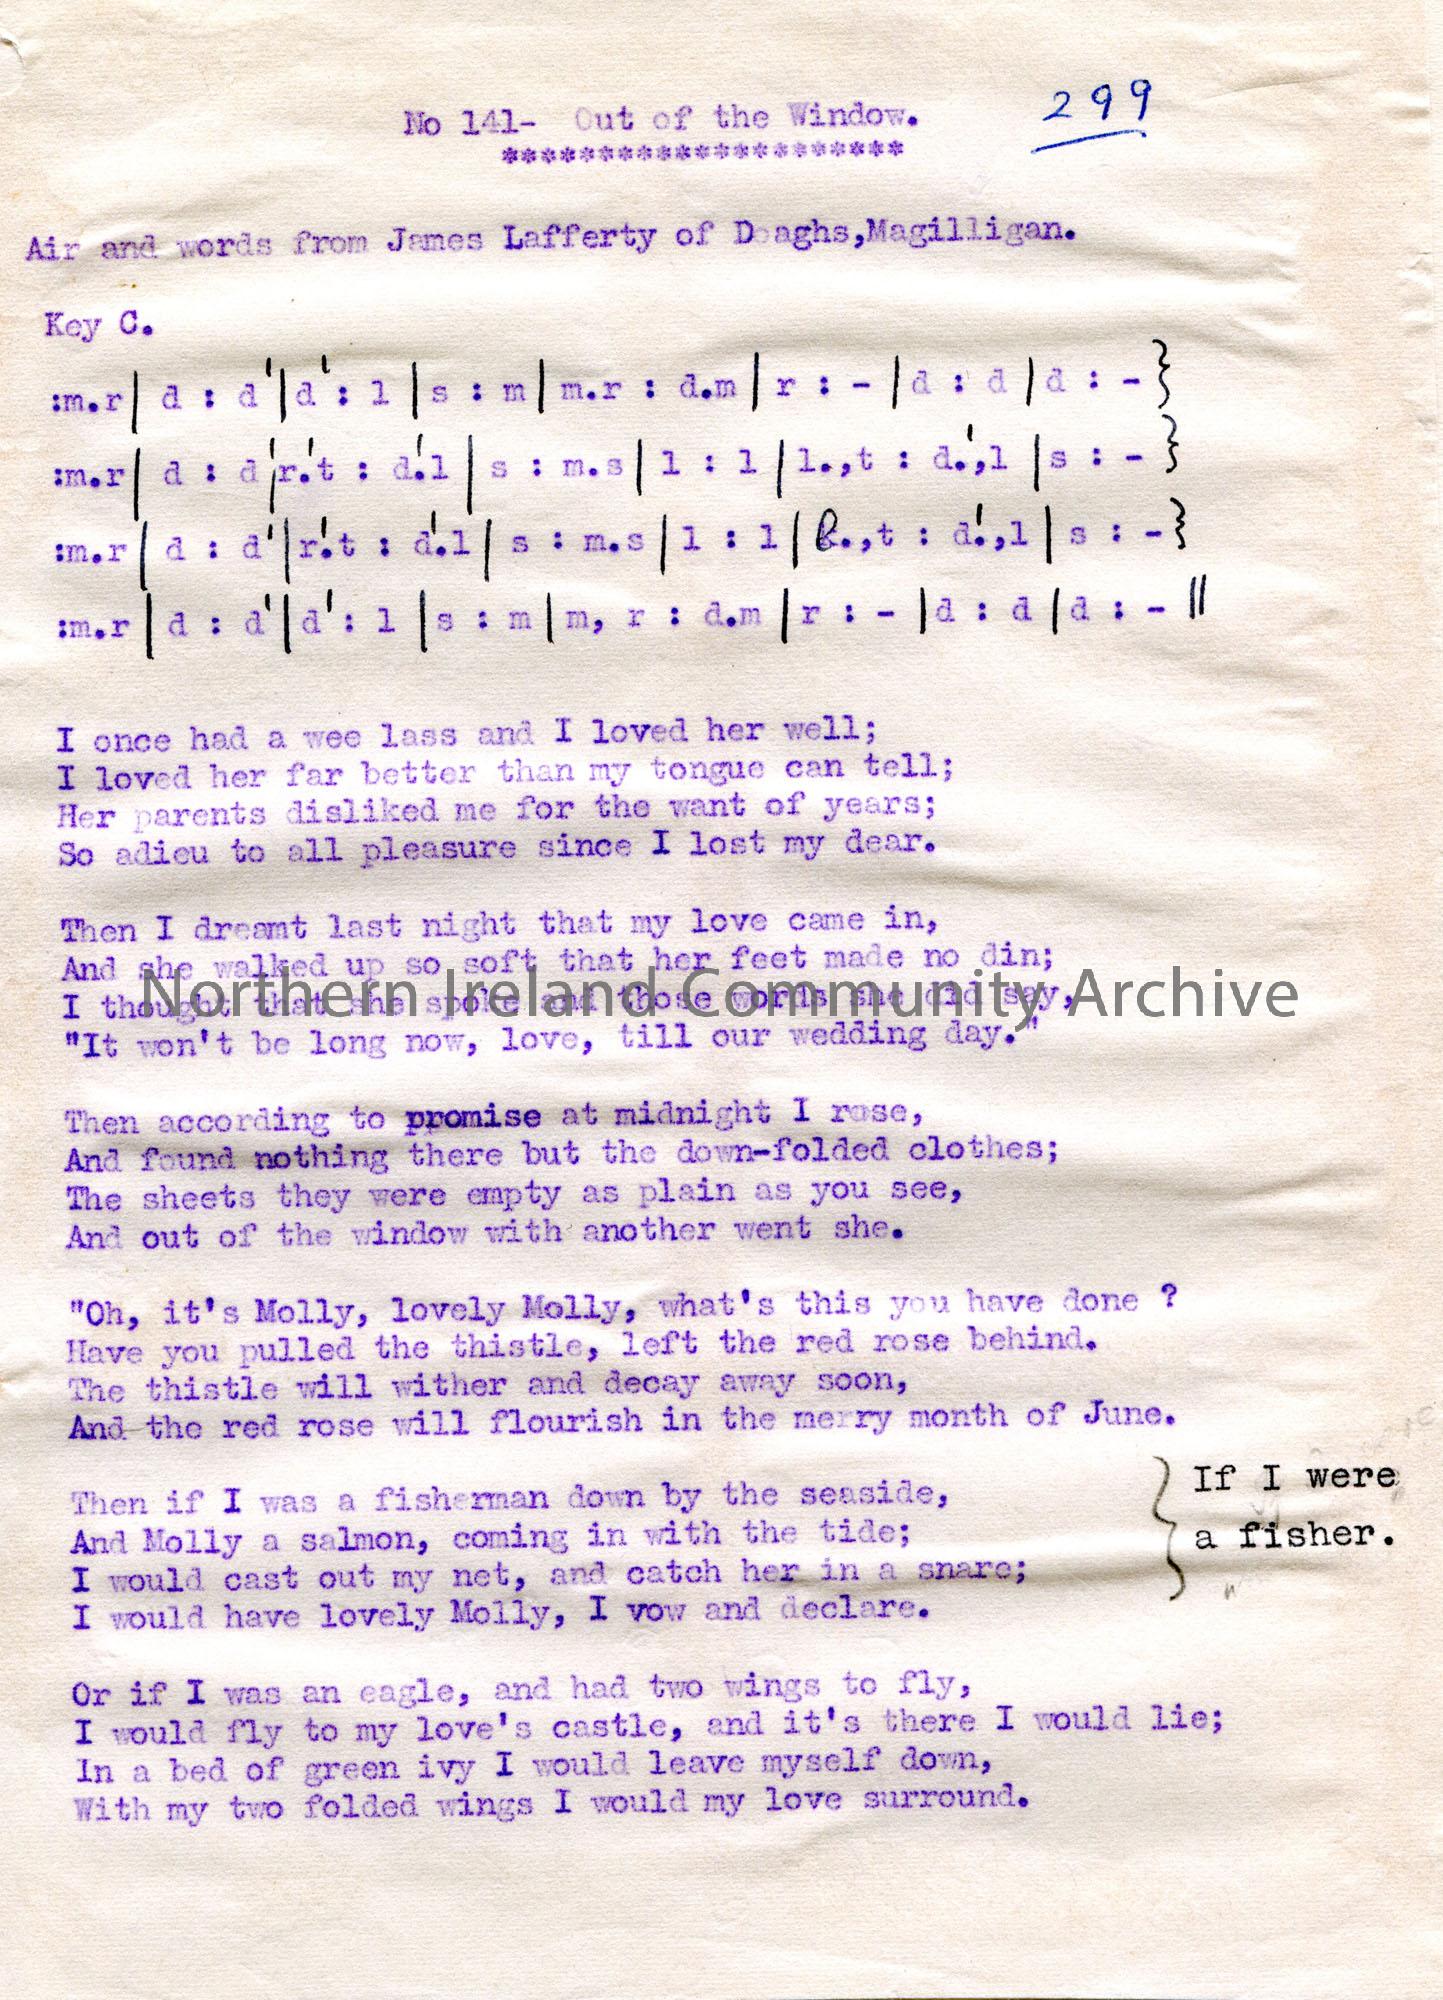 No 141- Out of the Window.
299
*********************
Air and words from James Lafferty of Doaghs,Magilligan.
Key C.
:m.r| d : d'|d' : l |s : m |m.r : d.m |r : - |d : d |d : - }
:m.r| d : d'|r'.t : d'.l | s : m.s | l : l |l.,t : d'.,l |s : - }
:m.r| d : d'|r'.t : d'.l | s : m.s | l : l | l.,t : d'.,l | s : - }
:m.r| d : d'|d' : l |s : m |m, r : d.m |r : - |d : d |d : - ||
I once had a wee lass and I loved her well;
I loved her far better than my tongue can tell;
Her parents disliked me for the want of years;
So adieu to all pleasure since I lost my dear.
Then I dreamt last night that my love came in,
And she walked up so soft that her feet made no din;
Northern Ireland Community Archive
I thought that she spoke and those words she did say,
"It won't be long now, love, till our wedding day."
Then according to promise at midnight I rose,
And found nothing there but the down-folded clothes;
The sheets they were empty as plain as you see,
And out of the window with another went she.
"Oh, it's Molly, lovely Molly, what's this you have done ?
Have you pulled the thistle, left the red rose behind.
The thistle will wither and decay away soon,
And the red rose will flourish in the merry month of June.
Then if I was a fisherman down by the seaside,
And Molly a salmon, coming in with the tide;
I would cast out my net, and catch her in a snare;
I would have lovely Molly, I vow and declare.
} If I were
a fisher.
Or if I was an eagle, and had two wings to fly,
I would fly to my love's castle, and it's there I would lie;
In a bed of green ivy I would leave myself down,
With my two folded wings I would my love surround.